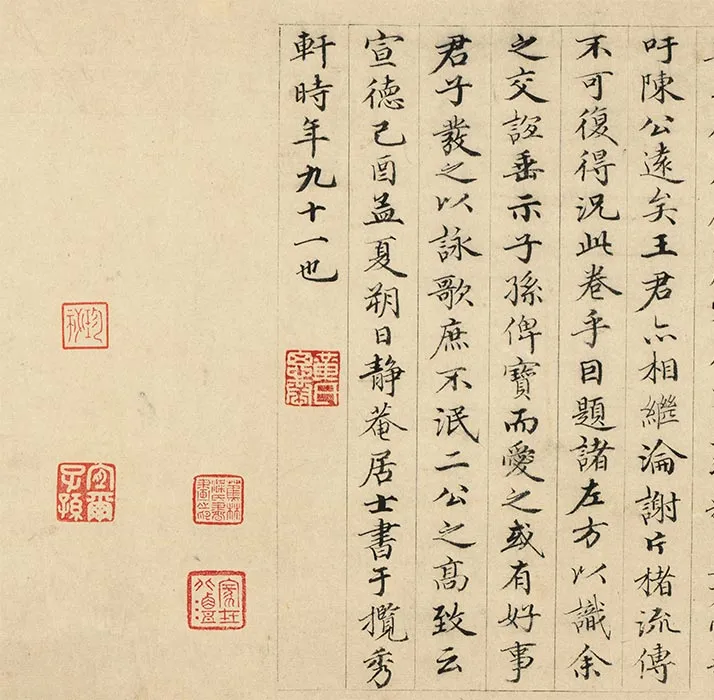 吁陳公遠矣王君亦相繼淪謝片楮流傳
不可復得況此卷乎因題諸左方以識余
之交誼垂示子孫俾寶而愛之或有好事
君子發之以詠歌庶不泯二公之高致云
宣德己酉孟夏朔日靜菴居士書于攬秀
軒時年九十一也
蕉林
宜爾
子孫